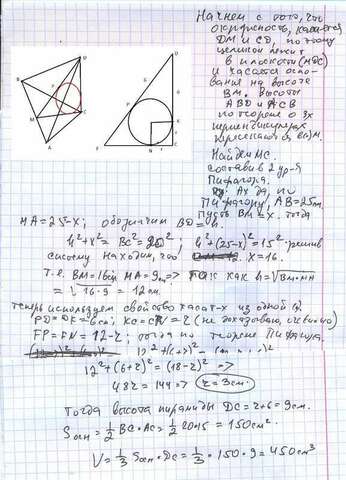 Начнем с того, что
окружность, касается
DM и CD, поэтому
целиком лежит
в плоскости (MDC)
и касается осно-
вания на высоте
BM. Высоты
ABD и ACB
по теореме о 3х
перпендикулярах
пересекаются в (.)M.
Найдем MC.
составив 2 ур-я
Пифагора.
Ах да, по
Пифагору, AB=25см.
Пусть BM=x. тогда
MA=25-x; обозначим
h²+x²=BC²=20²; h²+(25-x)²=15². решив
систему находим, что x=16.
т.е. BM=16см MA=9см, так как h=√BM·MA
=√16·9 = 12см.
теперь используем свойство касат-х из одной (.)
PD=DE=6см; KC=CN=r (не доказываю, очевидно)
FP=FN=12-r; тогда по теореме Пифагора.
12²+(6+r)²=(18-r)² =>
48r=144 => r=3см.
Тогда высота пирамиды DC=r+6=9см.
Sосн=½BC·AC=½20·15=150см².
V=⅓Sосн·DC=⅓·150·9=450см³